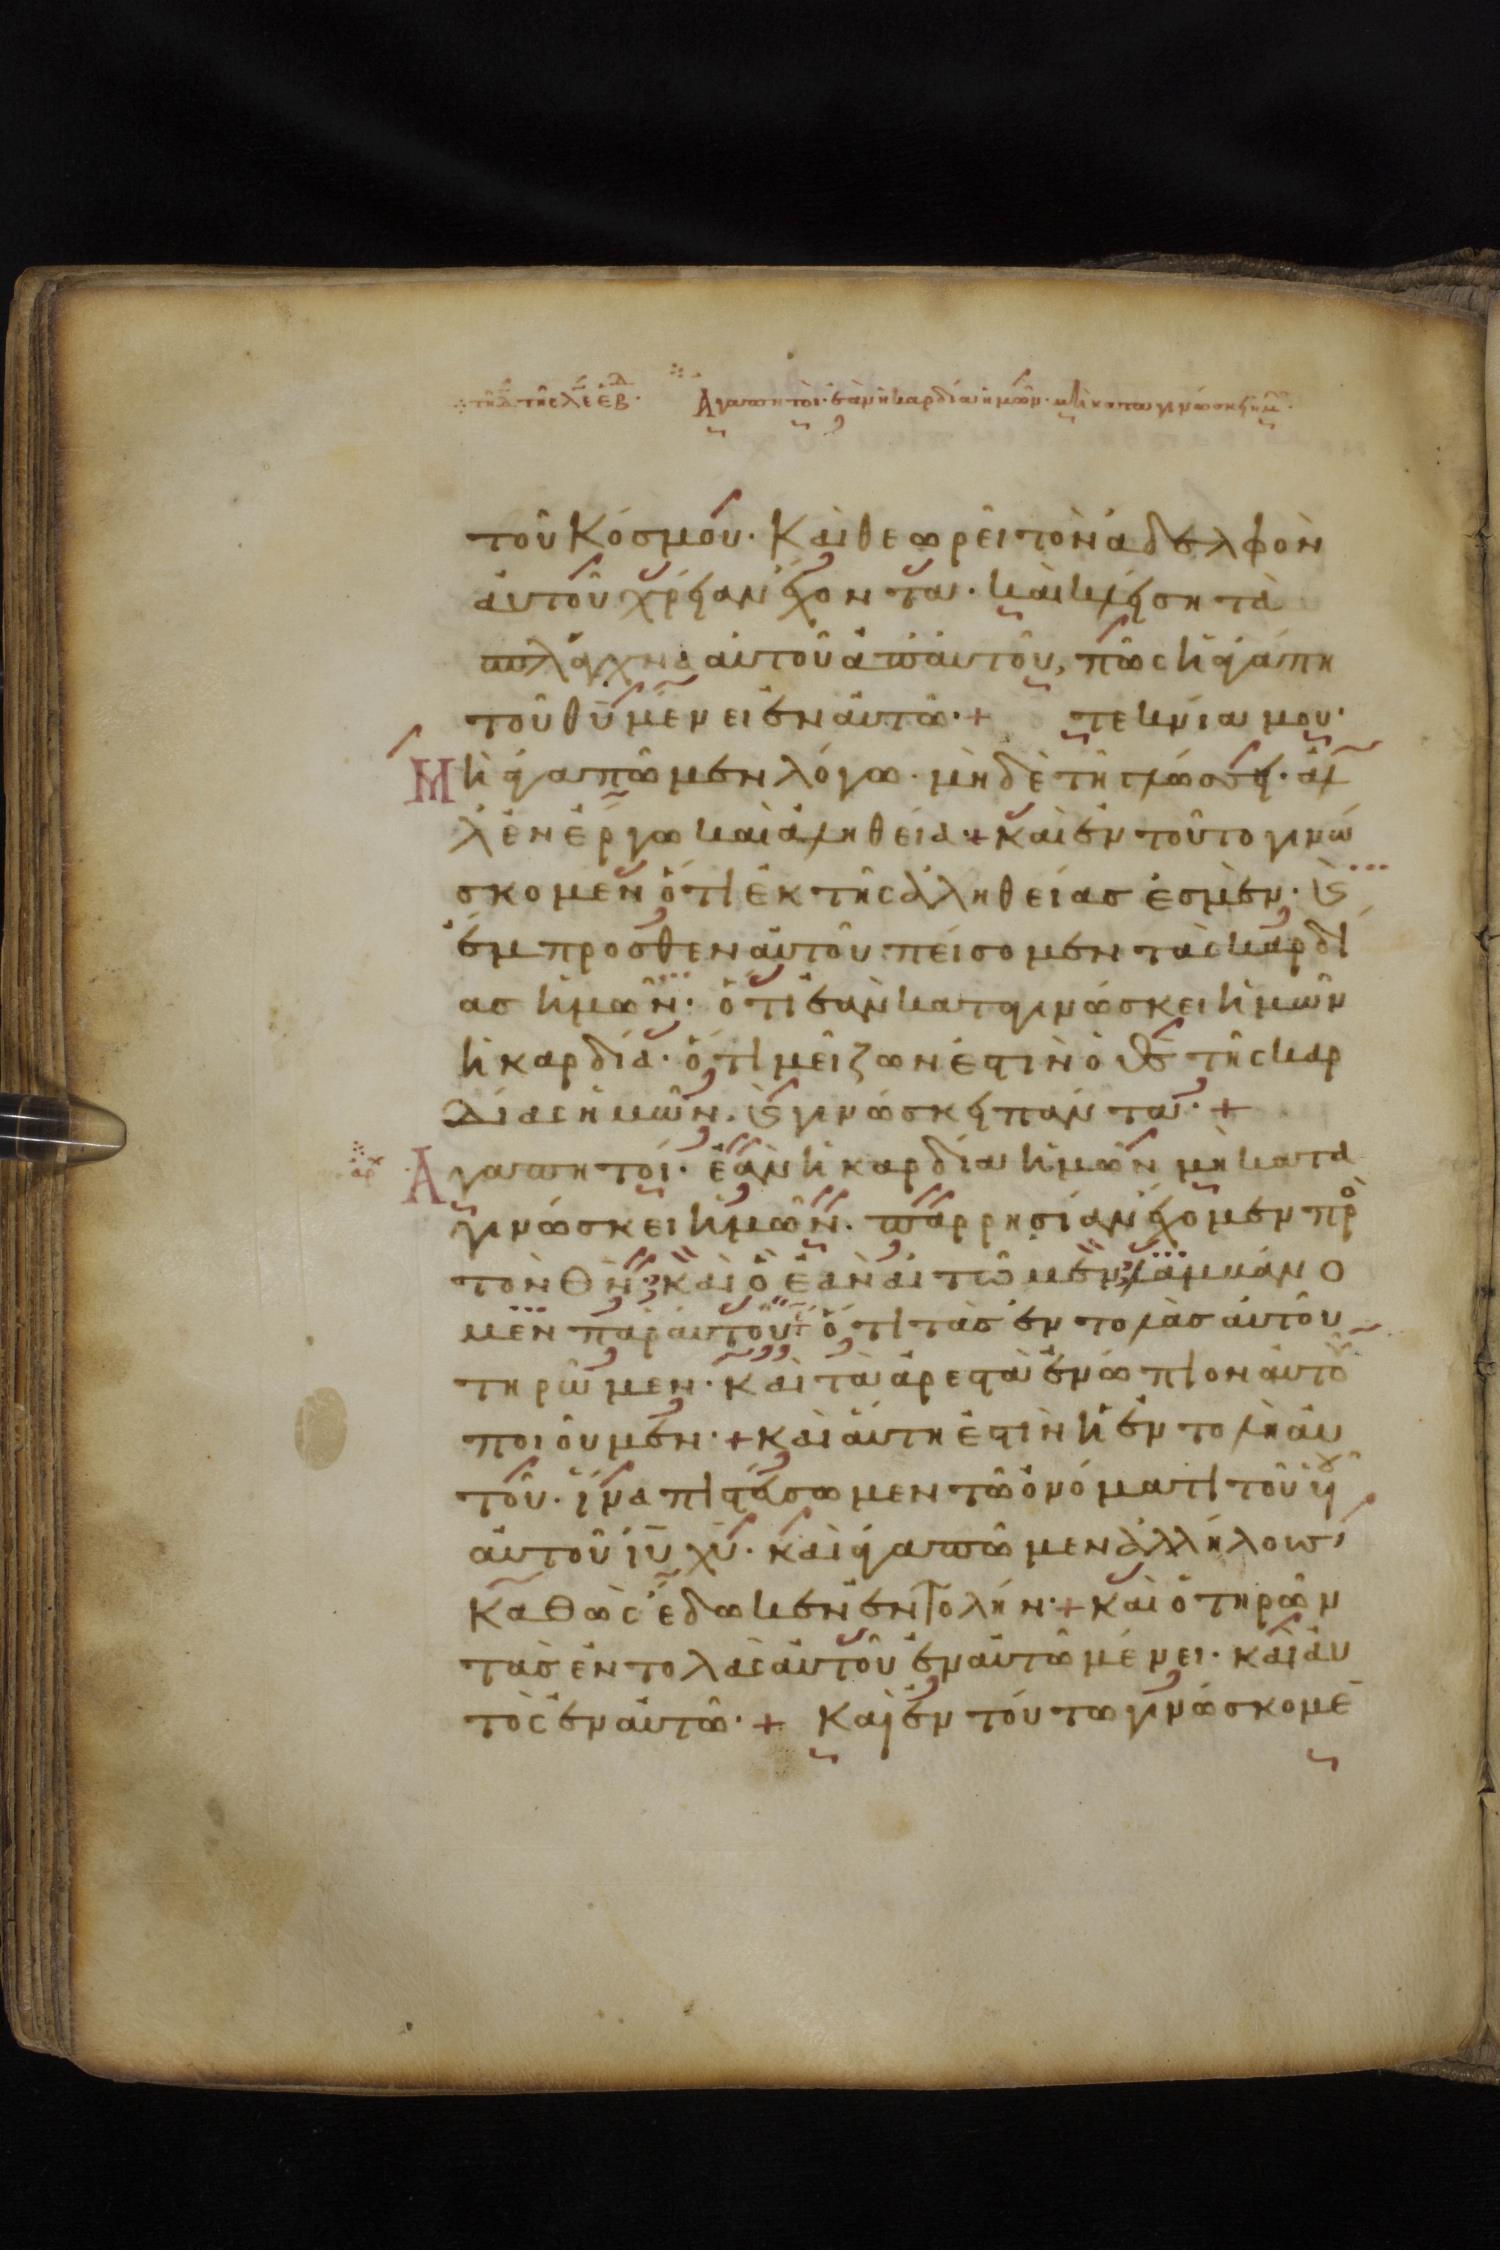 τῆ δ τῆς λε ἑβ Ἀγαπητοὶ· ἐὰν ἡ καρδία ἡμῶν· μὴ καταγινώσκη ἡμ
τοῦ κόσμου· καὶ θεωρεῖ τὸν ἀδελφὸν
αὐτοῦ χρείαν ἔχοντα· καὶ κλείση τὰ
σπλάγχνα αὐτοῦ ἀπ' αὐτοῦ, πῶς ἡ ἀγάπη
τοῦ θυ μένει ἐν αὐτῶ·+ τεκνία μου·
Μὴ ἀγαπῶμεν λόγω· μηδὲ τῆ γλώσση· ἀλ
λ' ἐν ἔργω καὶ ἀληθεία·+ καὶ ἐν τοῦτο γινώ
σκομεν ὅτι ἐκ τῆς ἀληθείας ἐσμὲν· ϗ
ἔμπροσθεν αὐτοῦ πείσομεν τὰς καρδί
ας ἡμῶν· ὅτι ἐὰν καταγινώσκει ἡμῶν
ἡ καρδία· ὅτι μεῖζων ἐστὶν ὁ θς τῆς καρ
δίας ἡμῶν. ϗ γινώσκει πάντα· +
ἀρχ Ἀγαπητοί· ἐὰν ἡ καρδία ἡμῶν μὴ κατα
γινώσκει ἡμῶν. παρρησίαν ἔχομεν πρὸ
τὸν θν· καὶ ὃ ἐὰν αἰτῶμεν, λαμβάνο
μεν παρ' αὐτοῦ· ὅτι τὰς ἐντολὰς αὐτοῦ
τηρῶμεν· καὶ τὰ ἀρεστὰ ἐνώπιον αὐτοῦ
ποιοῦμεν·+ καὶ αὕτη ἐστὶν ἡ ἐντολὴ αὐ
τοῦ· ἵνα πιστεύσωμεν τῶ ὀνόματι τοῦ υἱοῦ
αὐτοῦ ιυ χυ· καὶ ἀγαπῶμεν ἀλλήλους,
Καθὼς ἔδωκεν ἐντολήν·+ καὶ ὁ τηρῶν
τὰς ἐντολὰς αὐτοῦ ἐν αὐτῶ μένει· καὶ αὐ
τὸς ἐν αὐτῶ·+ Καὶ ἐν τούτω γινώσκομε